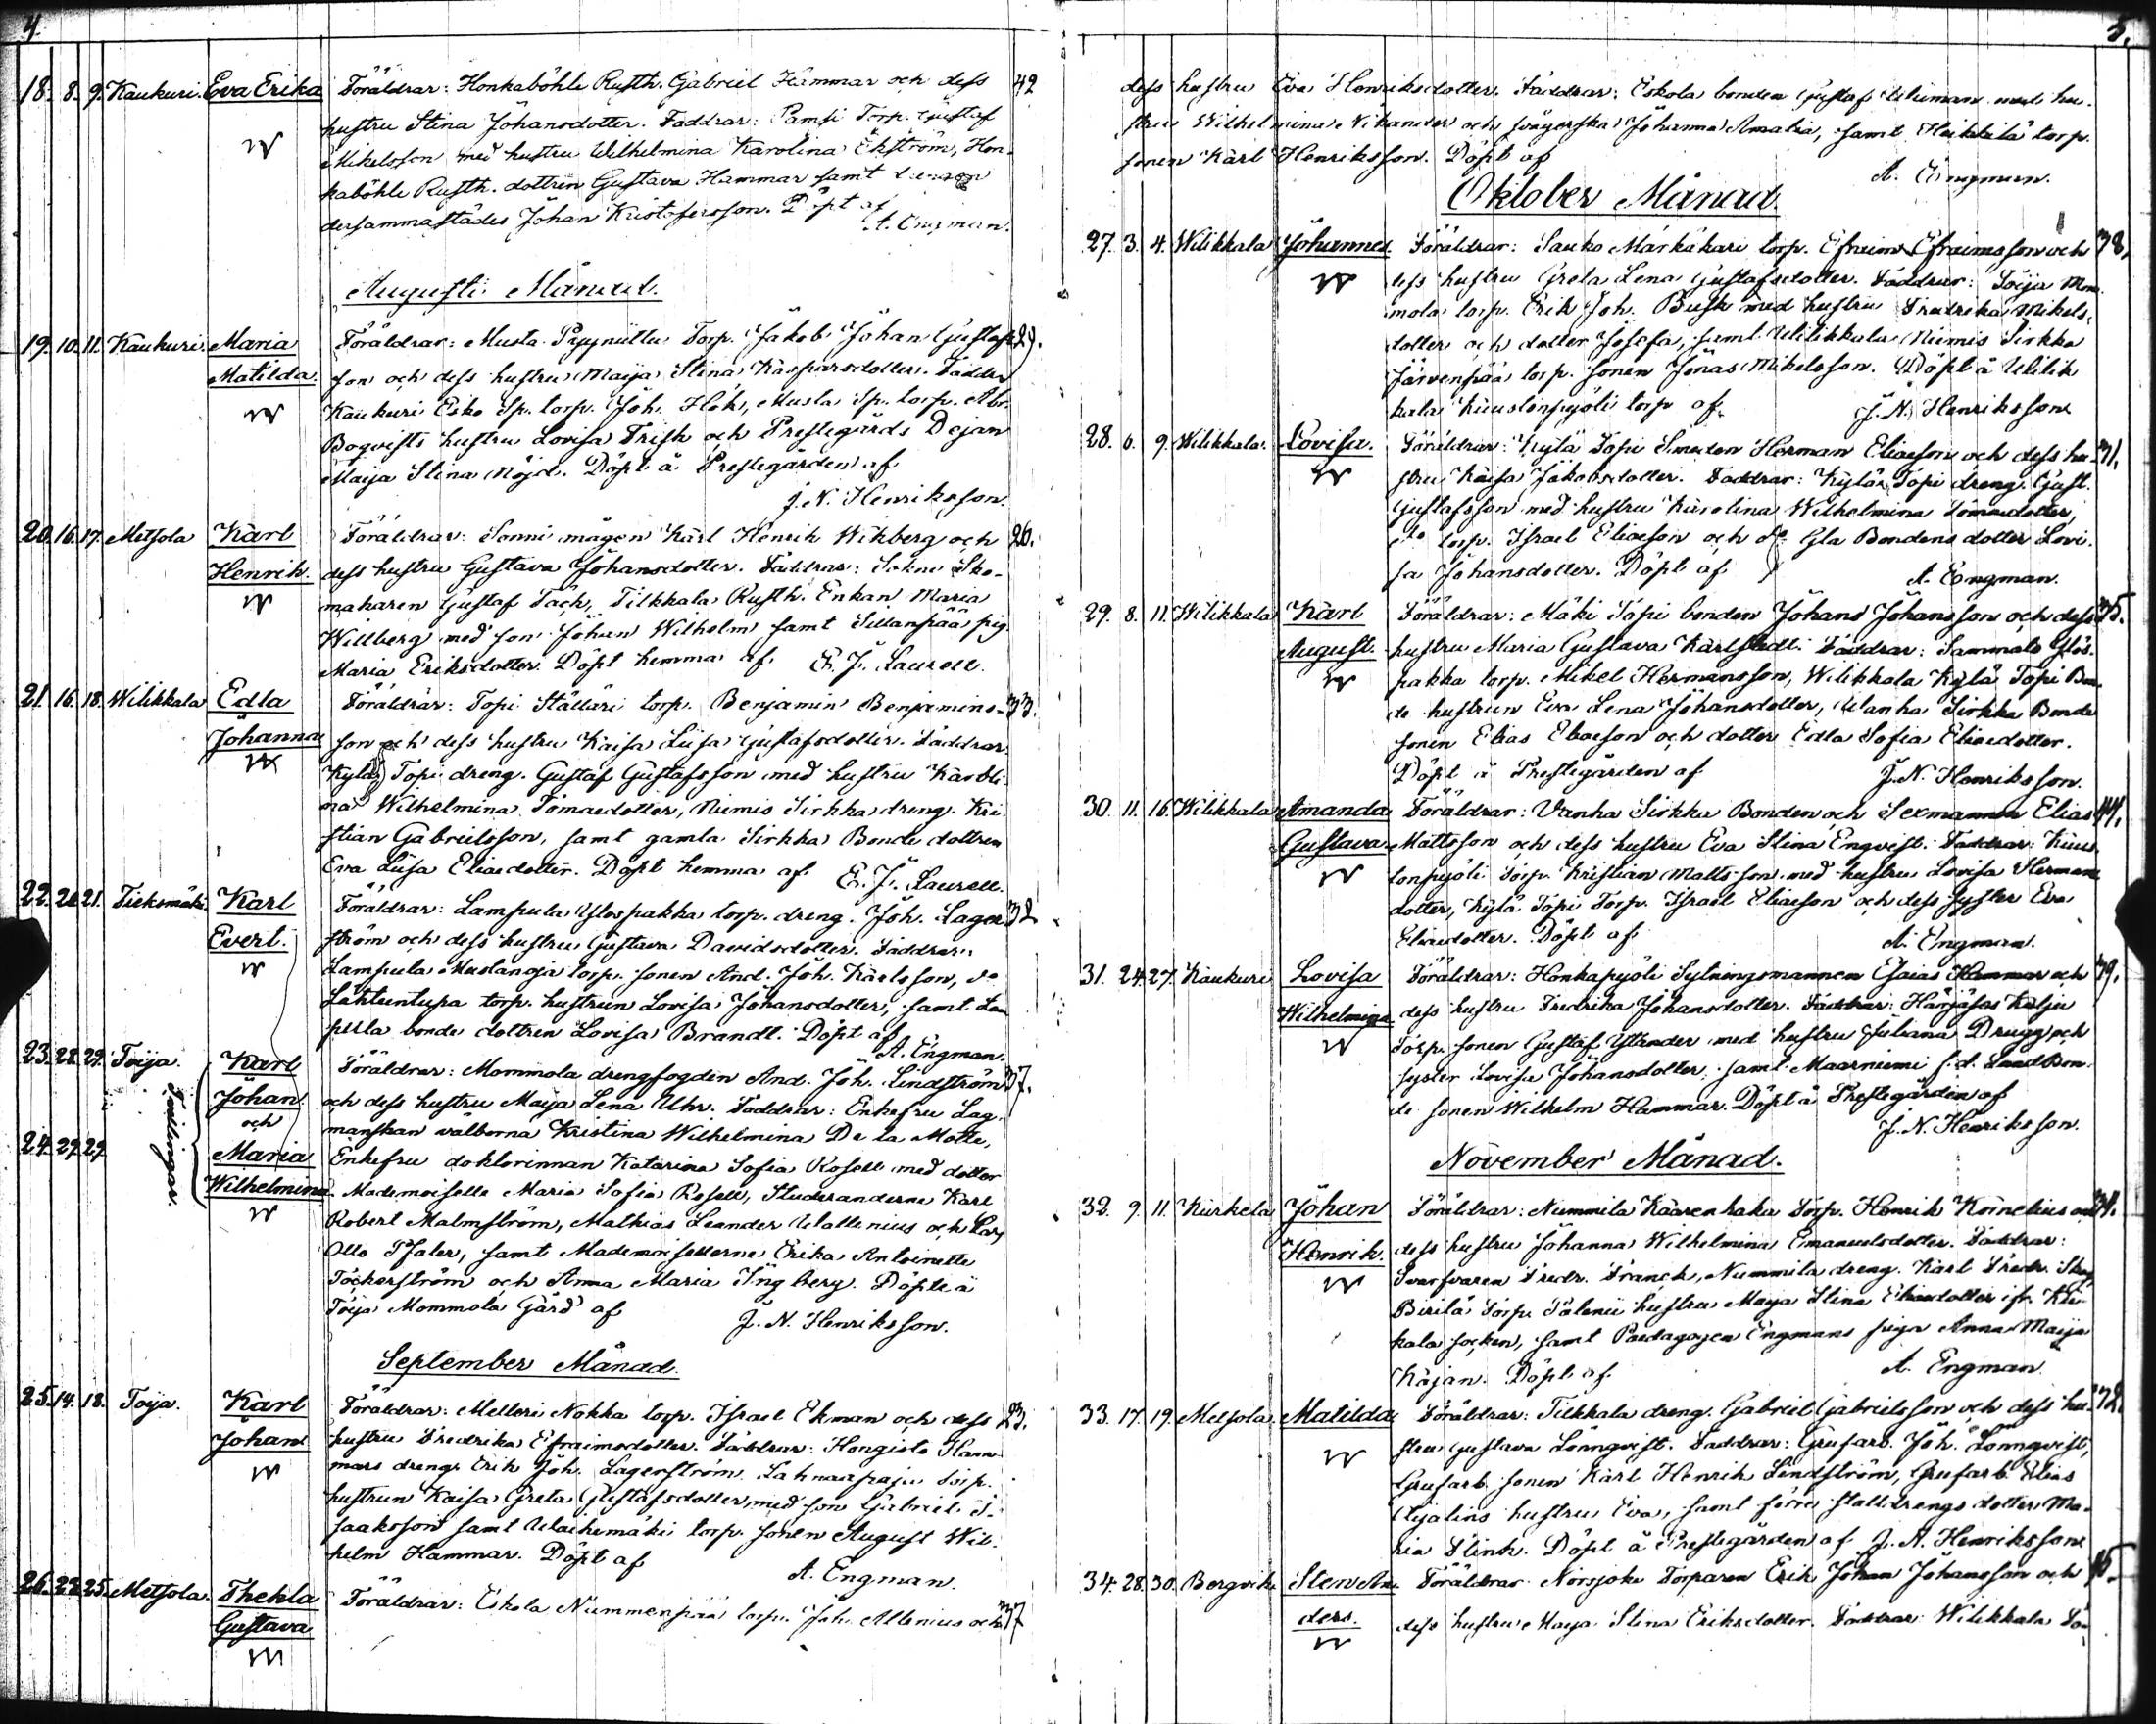 4.
18. 8. 9. Kaukuri. Eva Erika Föräldrar: Honkaböhle Rusth. Gabriel Hammar och dess 42
hustru Stina Johansdotter. Faddrar: Torp. Gustaf
Mikelsson med hustru Wilhelmina Karolina Ekström, Hon-
kaböhle Rusth. dottren Gustava Hammar samt
dersammastädes Johan Kristofersson. Döpt af
A. Engman.
Augusti Månad.
19. 10. 11. Kaukuri. Maria Föräldrar: Musta Torp. Jakob Johan Gustafs 29.
Matilda. son och dess hustru Maija Stina Kasparsdotter. Faddr.
Kaukuri Esko Sp. torp. Joh. Hök, Musta Sp. torp. Abr.
Boqvists hustru Lovisa Frish och Prestegårds Dejan
Maija Stina Nöjd. Döpt å Prestegården af
J. N. Henriksson.
20. 16. 17. Metsola Karl Föräldrar: Sonni mågen Karl Henrik Wikberg och 26.
Henrik. dess hustru Gustava Johansdotter. Faddrar: Sko-
makaren Gustaf Täch, Tilkkala Rusth. Enkan Maria
Willberg med son Johan Wilhelm samt Sillanpää pig.
Maria Eriksdotter. Döpt hemma af E. J. Laurell.
21. 16. 18. Wilikkala Edla Föräldrar: Topi Ställäri torp. Benjamin Benjamins- 33.
Johanna son och dess hustru Kaisa Lisa Gustafsdotter. Faddrar:
Kylä Topi dreng. Gustaf Gustafsson med hustru Karoli-
na Wilhelmina Tomasdotter, Niemis Sirkka dreng. Kri-
stian Gabrielsson, samt gamla Sirkka Bonde dottren
Eva Lisa Eliaedotter. Döpt hemma af E. J. Laurell.
22. 20. 21. Tiksmäki. Karl Föräldrar: Lampula Ylospakka torp. dreng. Joh. Lager- 32
Evert. ström och dess hustru Gustava Davidsdotter. Faddrar:
Lampula Mustanoja torp. sonen And. Joh. Karlsson, do
Lahtuntupa torp. hustrun Lovisa Johansdotter, samt
perla bonde dottren Lovisa Brandt. Döpt af
A. Engman.
23. 28. 29. Toija. Karl Föräldrar: Mommola drengfogden And. Joh. Lindström 37.
Johan och dess hustru Maija Lena Uhr. Faddrar: Enkefru Lag-
och manskan välborna Kristina Wilhelmina De la Motte,
24. 29. 29. Tvillingar. Maria Enkefru doktorinnan Katarina Sofia Rosell med dotter
Wilhelmina. Mademoiselle Maria Sofia Rosell, Studeranderne Karl
Robert Malmström, Mathias Leander Wallenius och Lars
Otto Pfaler, samt Mademoisellerne Erika Antoinette
Töckerström och Anna Maria Yngberg. Döpte å
Toija Mommola Gård af J. N. Henriksson.
September Månad.
25. 14. 18. Toija. Karl Föräldrar: Melleri Nokka torp. Israel Ekman och dess 23.
Johan hustru Fredrika Efraimsdotter. Faddrar: Hongisto Ham-
mars dreng. Erik Joh. Lagerström. Lahnaapaju torp.
hustrun Kaisa Greta Gustafsdotter med son Gabriel I-
saaksson samt torp. sonen August Wil-
helm Hammar. Döpt af
A. Engman.
26. 22. 25. Metsola. Thekla Föräldrar: Eskola Nummenpää torp. Joh. Allenius och 37
Gustava
5.
dess hustru Eva Henriksdotter. Faddrar: Eskola bonden Gustaf med hu-
stru Wilhelmina Nikander och svägerska Johanna Amalia, samt Heikkilä torp.
sonen Karl Henriksson. Döpt af
A. Engman.
Oktober Månad.
27. 3. 4. Wilikkala Johannes. Föräldrar: Sauko Märkäkari torp. Efraim Efraimsson och 38.
dess hustru Greta Lena Gustafsdotter. Faddrar: Toija Mom-
mola torp. Erik Joh. Busk med hustru Fredrika Mikels-
dotter och dotter Josefa, samt Wilikkala Niemis Sirkka
Järvenpää torp. sonen Jonas Mikelsson. Döpt å Wilik-
kala Kuustonpyöli torp af J. N. Henriksson.
28. 6. 9. Wilikkala. Lovisa. Föräldrar: Kylä Topi Smeden Herman Eliaeson och dess hu- 31.
stru Kaisa Jakobsdotter. Faddrar: Kylä Topi dreng. Gust.
Gustafsson med hustru Karolina Wilhelmina Tomasdotter,
do torp. Israel Eliaeson och do Gla Bondens dotter Lovi-
sa Johansdotter. Döpt af A. Engman.
29. 8. 11. Wilikkala Karl Föräldrar: Mäki Topi bonden Johan Johansson och dess 25.
August. hustru Maria Gustava Karlstedt. Faddrar: Sammalo Ylös-
pakka torp. Mikel Hermansson, Wilikkala Kylä Topi Bon-
de hustrun Eva Lena Johansdotter, Wanha Sirkka Bonde
sonen Elias Eliaeson och dotter Edla Sofia Eliaedotter.
Döpt å Prestegården af J. N. Henriksson.
30. 11. 16. Wilikkala Amanda Föräldrar: Vanha Sirkka Bonden och Sexmannen Elias 44.
Gustava Mattsson och dess hustru Eva Stina Engvist. Faddrar: Kuus-
tonpyöli torp. Kristian Mattsson med hustru Lovisa Hermans-
dotter, Kylä Topi Torp. Israel Eliaeson och dess syster Eva
Eliaedotter. Döpt af A. Engman.
31. 24. 27. Kaukuri Lovisa Föräldrar: Honkapyöli Sytningsmannen Esaias Hammar och 49.
Wilhelmina dess hustru Fredrika Johansdotter. Faddrar: Harjäsas Kalsju
Torp. sonen Gustaf Ytander med hustru Juliana Drugg och
syster Lovisa Johansdotter, samt Maarniemi f. d. Land Bon-
de sonen Wilhelm Hammar. Döpt å Prestegården af
J. N. Henriksson.
November Månad.
32. 9. 11. Kurkela Johan Föräldrar: Nummila Käärenhaka Torp. Henrik Kornelius och 31.
Henrik. dess hustru Johanna Wilhelmina Emanuelsdotter. Faddrar:
Svarfvaren Fredr. Franck, Nummila dreng. Karl Fredr.
Birilä Torp. hustru Maija Stina Eliaedotter ifr. Kii-
kala socken, samt Paedagogen Engmans piga Anna Maija
Kajan. Döpt af A. Engman
33. 17. 19. Metsola. Matilda Föräldrar: Tilkkala dreng. Gabriel Gabrielsson och dess hu- 32.
stru Gustava Lönnqvist. Faddrar: Grufarb. Joh. Lönnqvist,
Grufarb. sonen Karl Henrik Lindström, Grufarb. Elias
hustru Eva, samt förre stalldrengs dotter Ma-
ria Flink. Döpt å Prestegården af J. N. Henriksson.
34. 28. 30. Bergvik Sten An- Föräldrar: Norsjoke Torparen Erik Johan Johansson och 45
ders. dess hustru Maja Stina Eriksdotter. Faddrar: Wilikkala